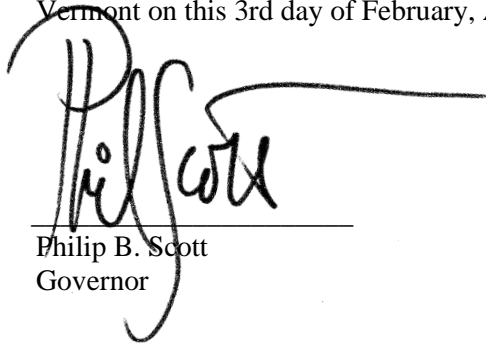 Vermont on this 3rd day of February, A
Phil Scott
Philip B. Scott
Governor